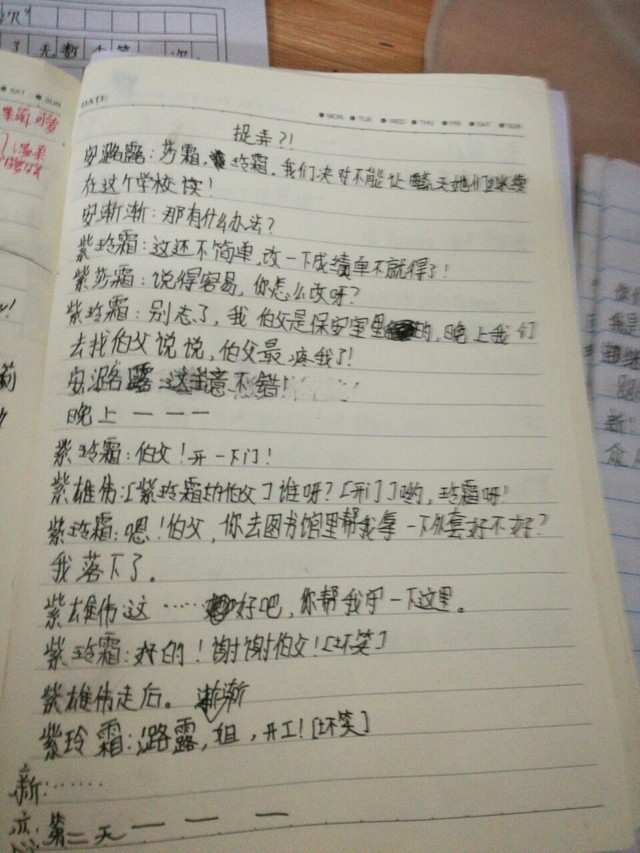 了无数个笔 次
SAT SUN
DATE:
MON TUE WED THU FRI SAT SUN
捉弄?!
安潞露:莎霜,玲霜,我们决对不能让天她们继续
在这个学校读!
安渐渐:那有什么办法?
紫玲霜:这还不简单,改一下成绩单不就得了!
紫莎霜:说得容易,你怎么改呀?
紫玲霜:别忘了,我伯父是保安室里的,晚上我们
去找伯父说说,伯父最疼我了!
安潞露 这主意不错!
晚上———
紫玲霜:伯父!开一下门!
紫雄伟:[紫玲霜的伯父]谁呀?[开门]哟,玲霜呀!
紫玲霜:嗯!伯父,你去图书馆里帮我拿一下外套好不好?
我落下了。
紫雄伟这……好吧,你帮我守一下这里。
紫玲霜:好的!谢谢伯父![坏笑]
紫雄伟走后。
渐渐
紫玲霜:潞露,姐,开工![坏笑]
新:……
第二天———